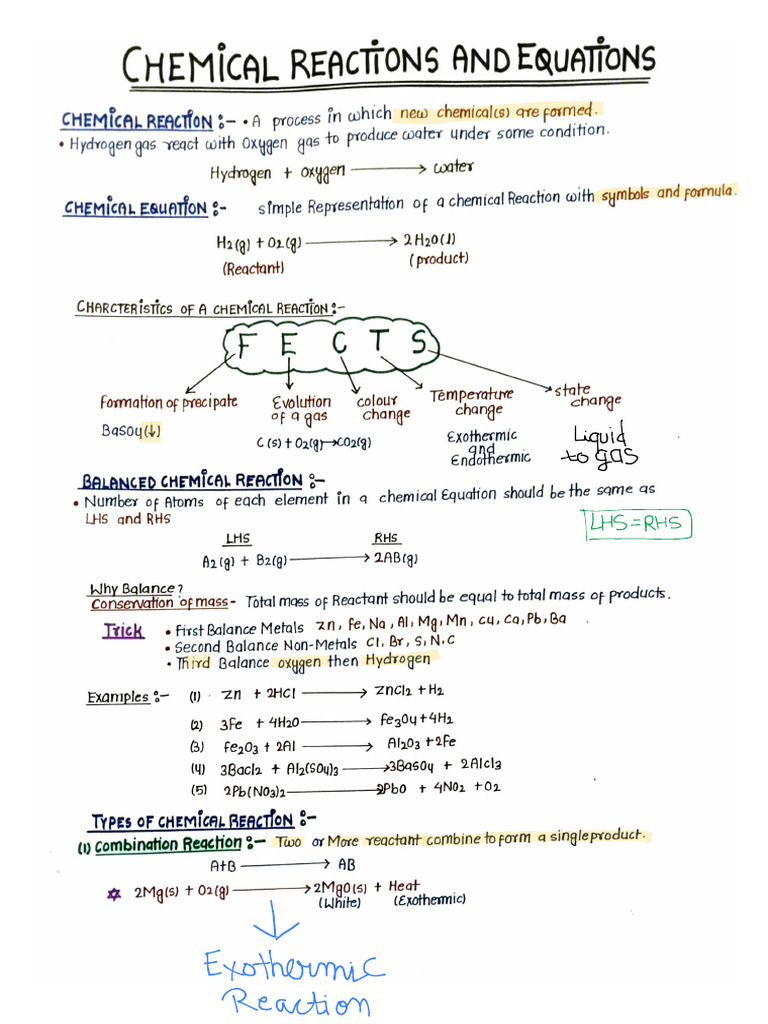 CHEMICAL REACTIONS AND EQUATIONS
CHEMICAL REACTION :- • A process in which new chemical(s) are formed.
• Hydrogen gas react with Oxygen gas to produce water under some condition.
Hydrogen + oxygen ⟶ water
CHEMICAL EQUATION :- simple Representation of a chemical Reaction with symbols and formula.
H2(g) + O2(g) ⟶ 2H2O(l)
(Reactant) (product)
CHARCTERISTICS OF A CHEMICAL REACTION :-
F E C T S
Formation of precipate
BaSO4(↓)
Evolution
of a gas
C(s) + O2(g) → CO2(g)
colour
change
Temperature
change
Exothermic
and
Endothermic
state
change
Liquid
to gas
BALANCED CHEMICAL REACTION :-
• Number of Atoms of each element in a chemical Equation should be the same as
LHS and RHS
LHS = RHS
LHS RHS
A2(g) + B2(g) ⟶ 2AB(g)
Why Balance?
Conservation of mass - Total mass of Reactant should be equal to total mass of products.
Trick • First Balance Metals Zn, Fe, Na, Al, Mg, Mn, Cu, Ca, Pb, Ba
• Second Balance Non-Metals Cl, Br, S, N, C
• Third Balance oxygen then Hydrogen
Examples :- (1) Zn + 2HCl ⟶ ZnCl2 + H2
(2) 3Fe + 4H2O ⟶ Fe3O4 + 4H2
(3) Fe2O3 + 2Al ⟶ Al2O3 + 2Fe
(4) 3BaCl2 + Al2(SO4)3 ⟶ 3BaSO4 + 2AlCl3
(5) 2Pb(NO3)2 ⟶ 2PbO + 4NO2 + O2
TYPES OF CHEMICAL REACTION :-
(1) Combination Reaction :- Two or More reactant combine to form a single product.
A+B ⟶ AB
2Mg(s) + O2(g) ⟶ 2MgO(s) + Heat
(White) (Exothermic)
Exothermic
Reaction